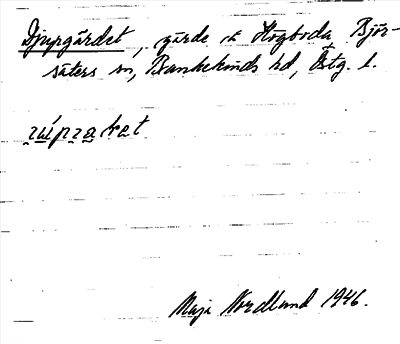 Djupgärdet, gärde i Högboda Björ-
säters sn, Bankekinds hd, Östg. l.
Maja Nordlund 1946.